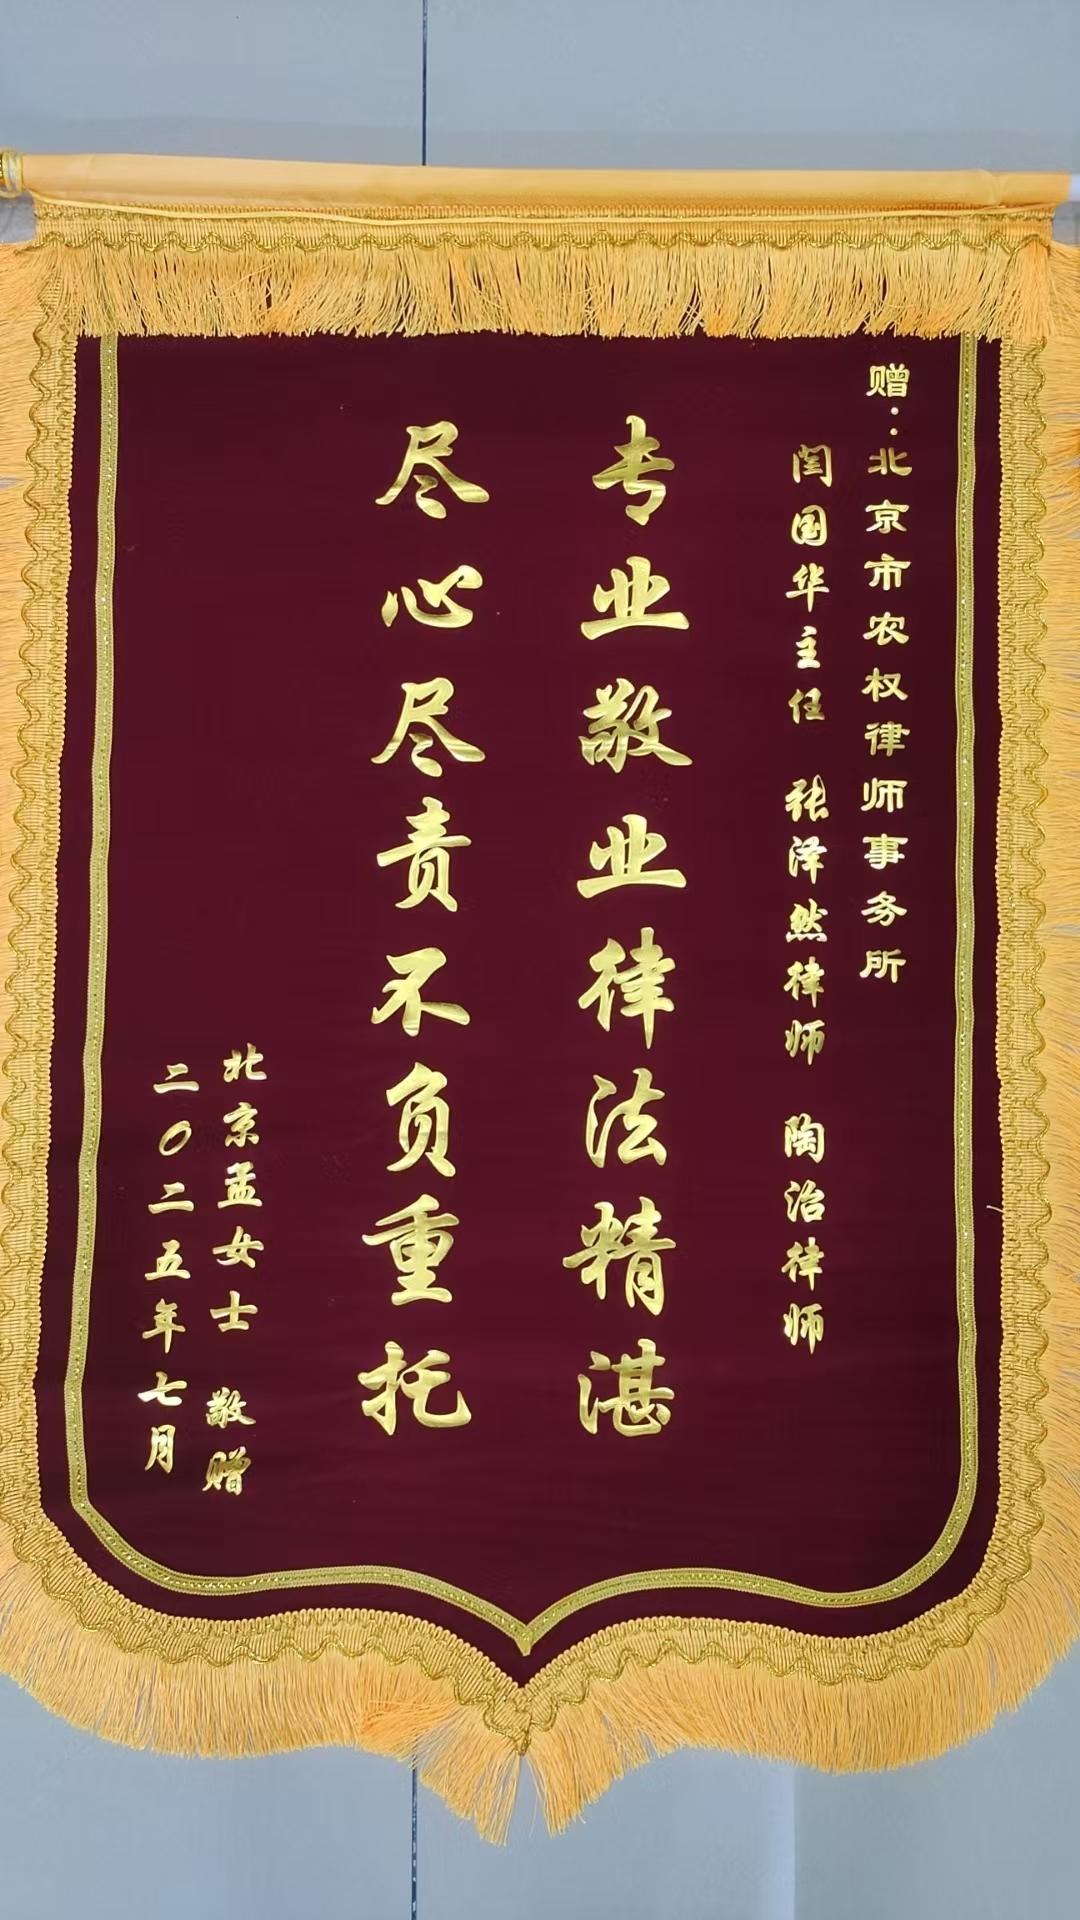 赠：北京市农权律师事务所
闫国华主任 张泽然律师 陶治律师
专业敬业律法精湛
尽心尽责不负重托
北京孟女士 敬赠
二〇二五年七月